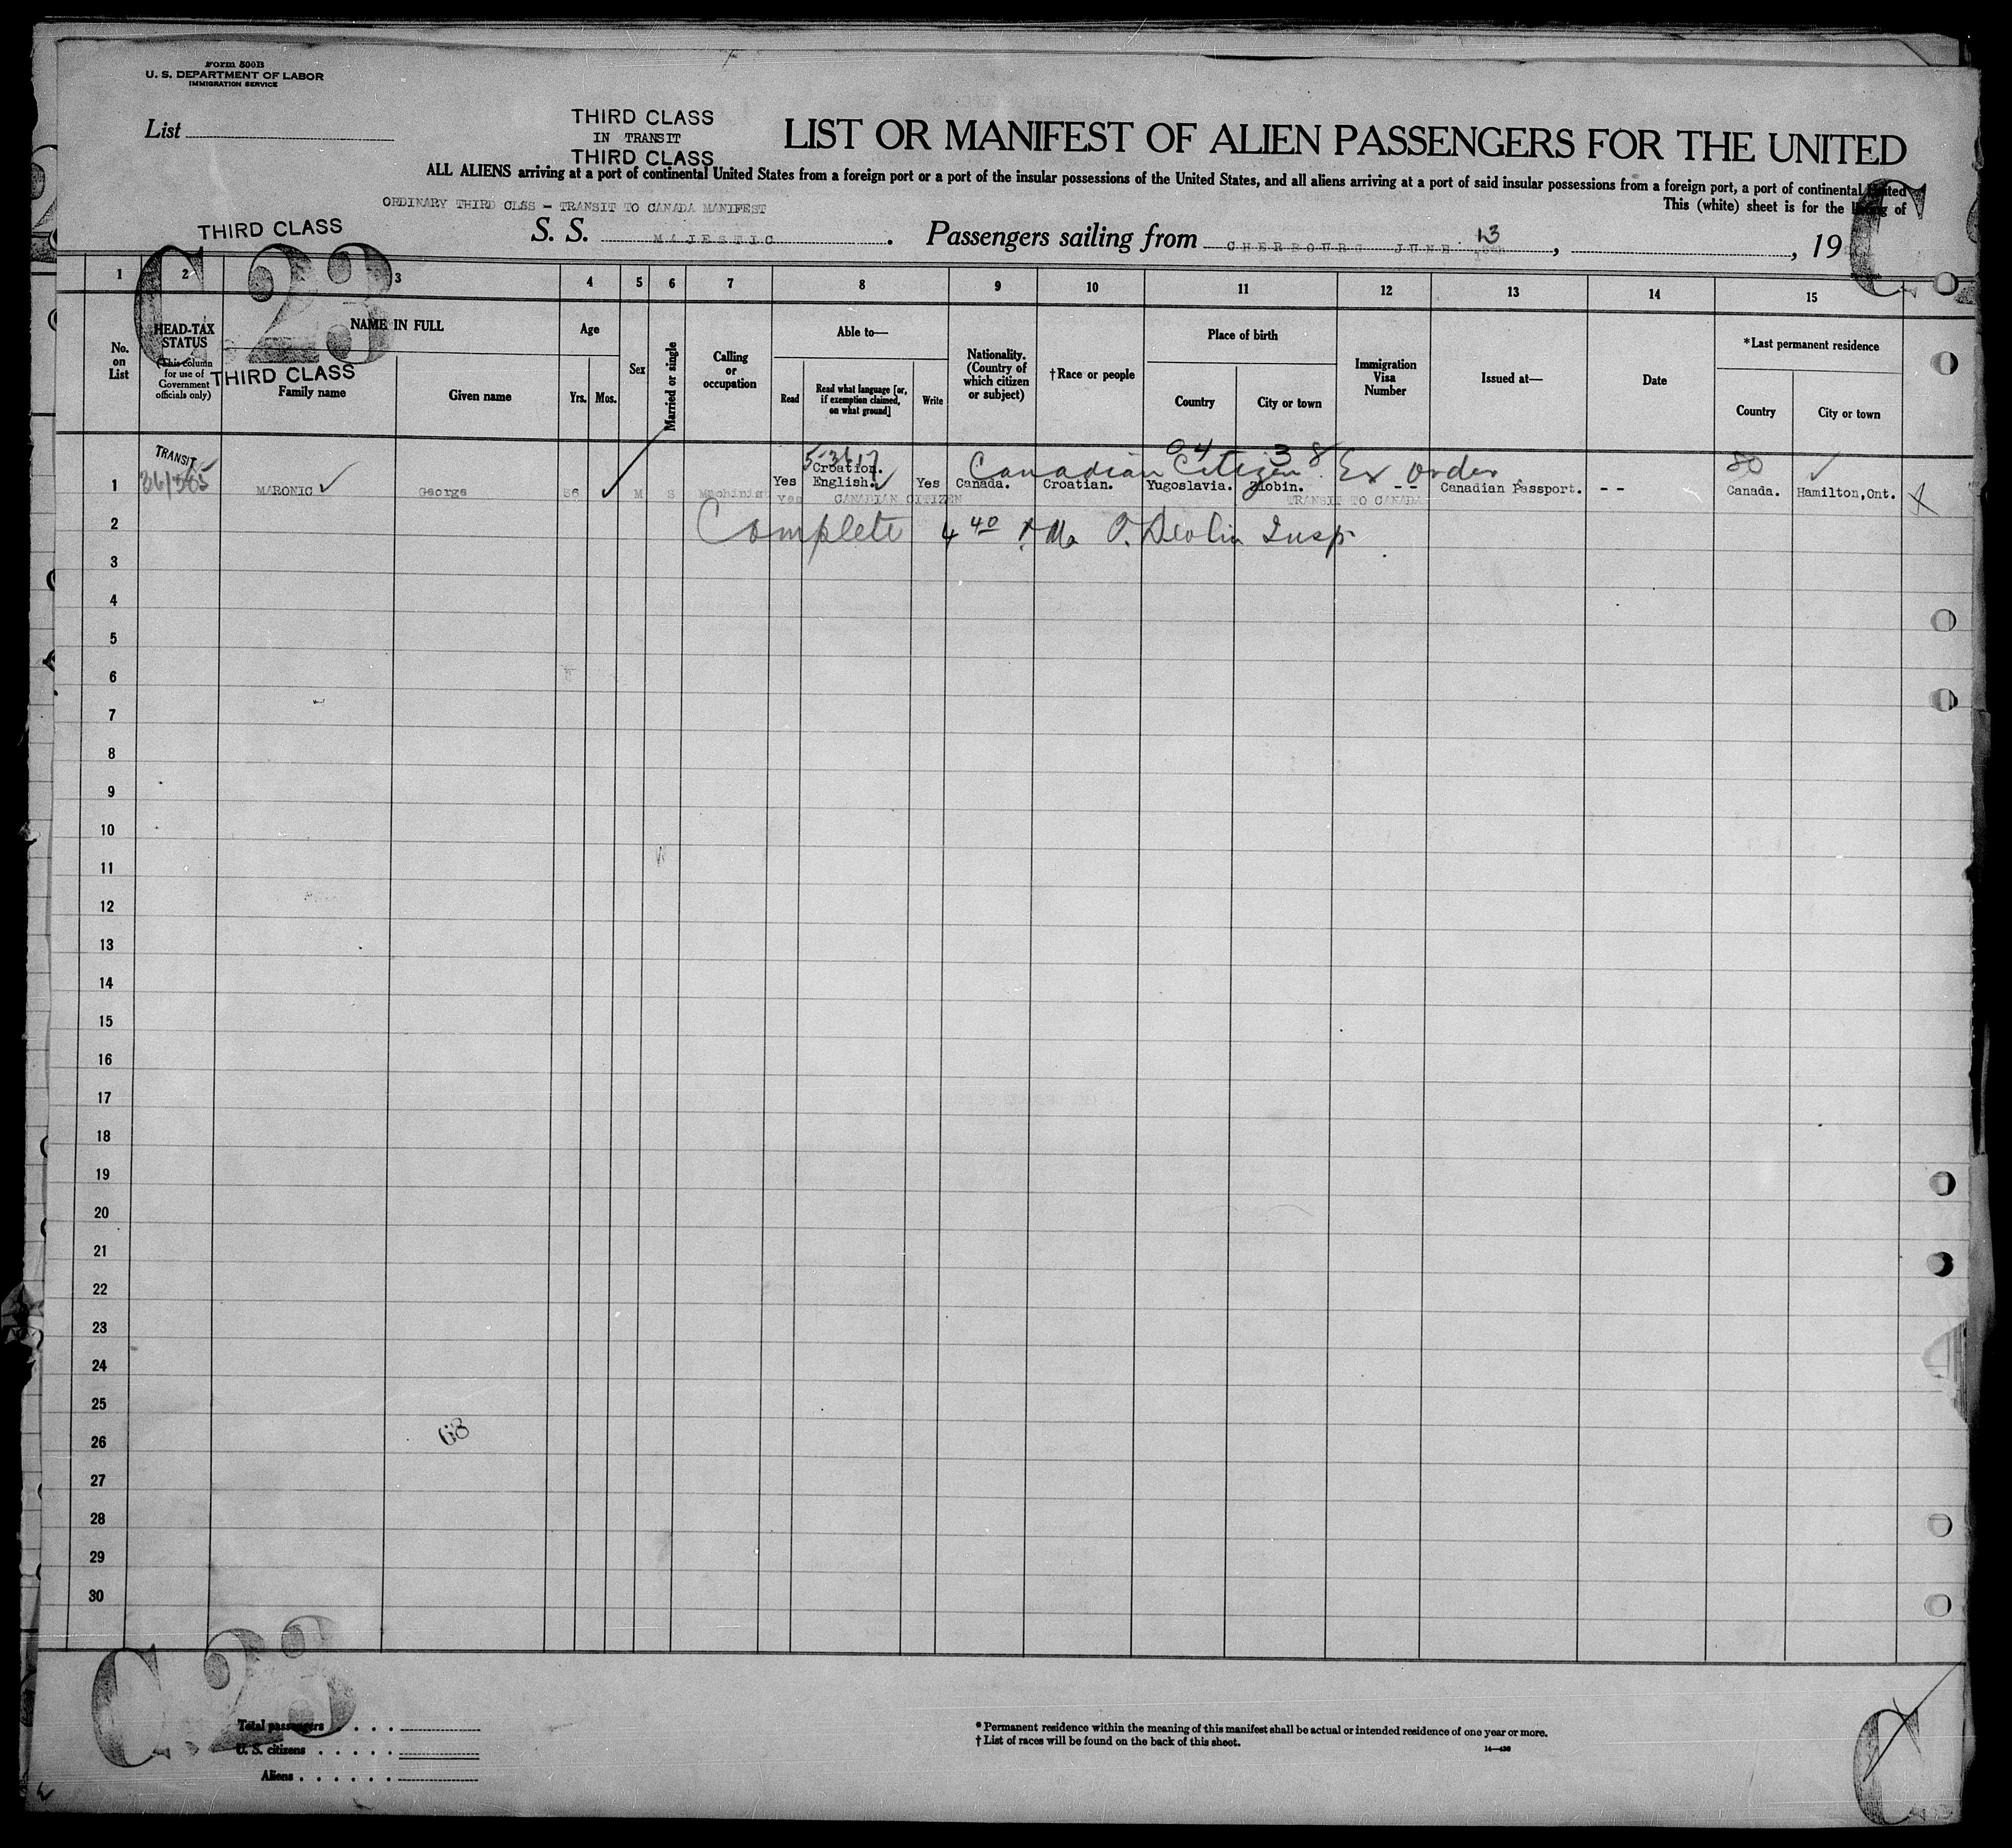 Form 500B
U. S. DEPARTMENT OF LABOR
IMMIGRATION SERVICE
List
THIRD CLASS
IN TRANSIT
THIRD CLASS
LIST OR MANIFEST OF ALIEN PASSENGERS FOR THE UNITED
ALL ALIENS arriving at a port of continental United States from a foreign port or a port of the insular possessions of the United States, and all aliens arriving at a port of said insular possessions from a foreign port, a port of continental United
This (white) sheet is for the listing of
ORDINARY THIRD CLSS - TRANSIT TO CANADA MANIFEST
THIRD CLASS
S. S. MAJESTIC. Passengers sailing from CHERBOURG JUNE 13, , 19
C 23
C
1 2 3 4 5 6 7 8 9 10 11 12 13 14 15
No. on List
HEAD-TAX STATUS
(This column for use of Government officials only)
NAME IN FULL
THIRD CLASS
Family name
Given name
Age
Yrs. Mos.
Sex
Married or single
Calling or occupation
Able to—
Read
Read what language [or, if exemption claimed, on what ground]
Write
Nationality. (Country of which citizen or subject)
†Race or people
Place of birth
Country
City or town
Immigration Visa Number
Issued at—
Date
*Last permanent residence
Country
City or town
TRANSIT
5-3617
04 38
80
Canadian Citizen Ex order
1 MARONIC George M S Machinist Yes Croation. English. Yes Canada. Croatian. Yugoslavia. Zlobin. -- Canadian Passport. -- Canada. Hamilton,Ont.
Yes CANADIAN CITIZEN TRANSIT TO CANADA
2
Complete 4 40 P.M. Devlin Insp.
3
4
5
6
7
8
9
10
11
12
13
14
15
16
17
18
19
20
21
22
23
24
25
68
26
27
28
29
30
C 23
Total passengers
U. S. citizens
Aliens
* Permanent residence within the meaning of this manifest shall be actual or intended residence of one year or more.
† List of races will be found on the back of this sheet.
C